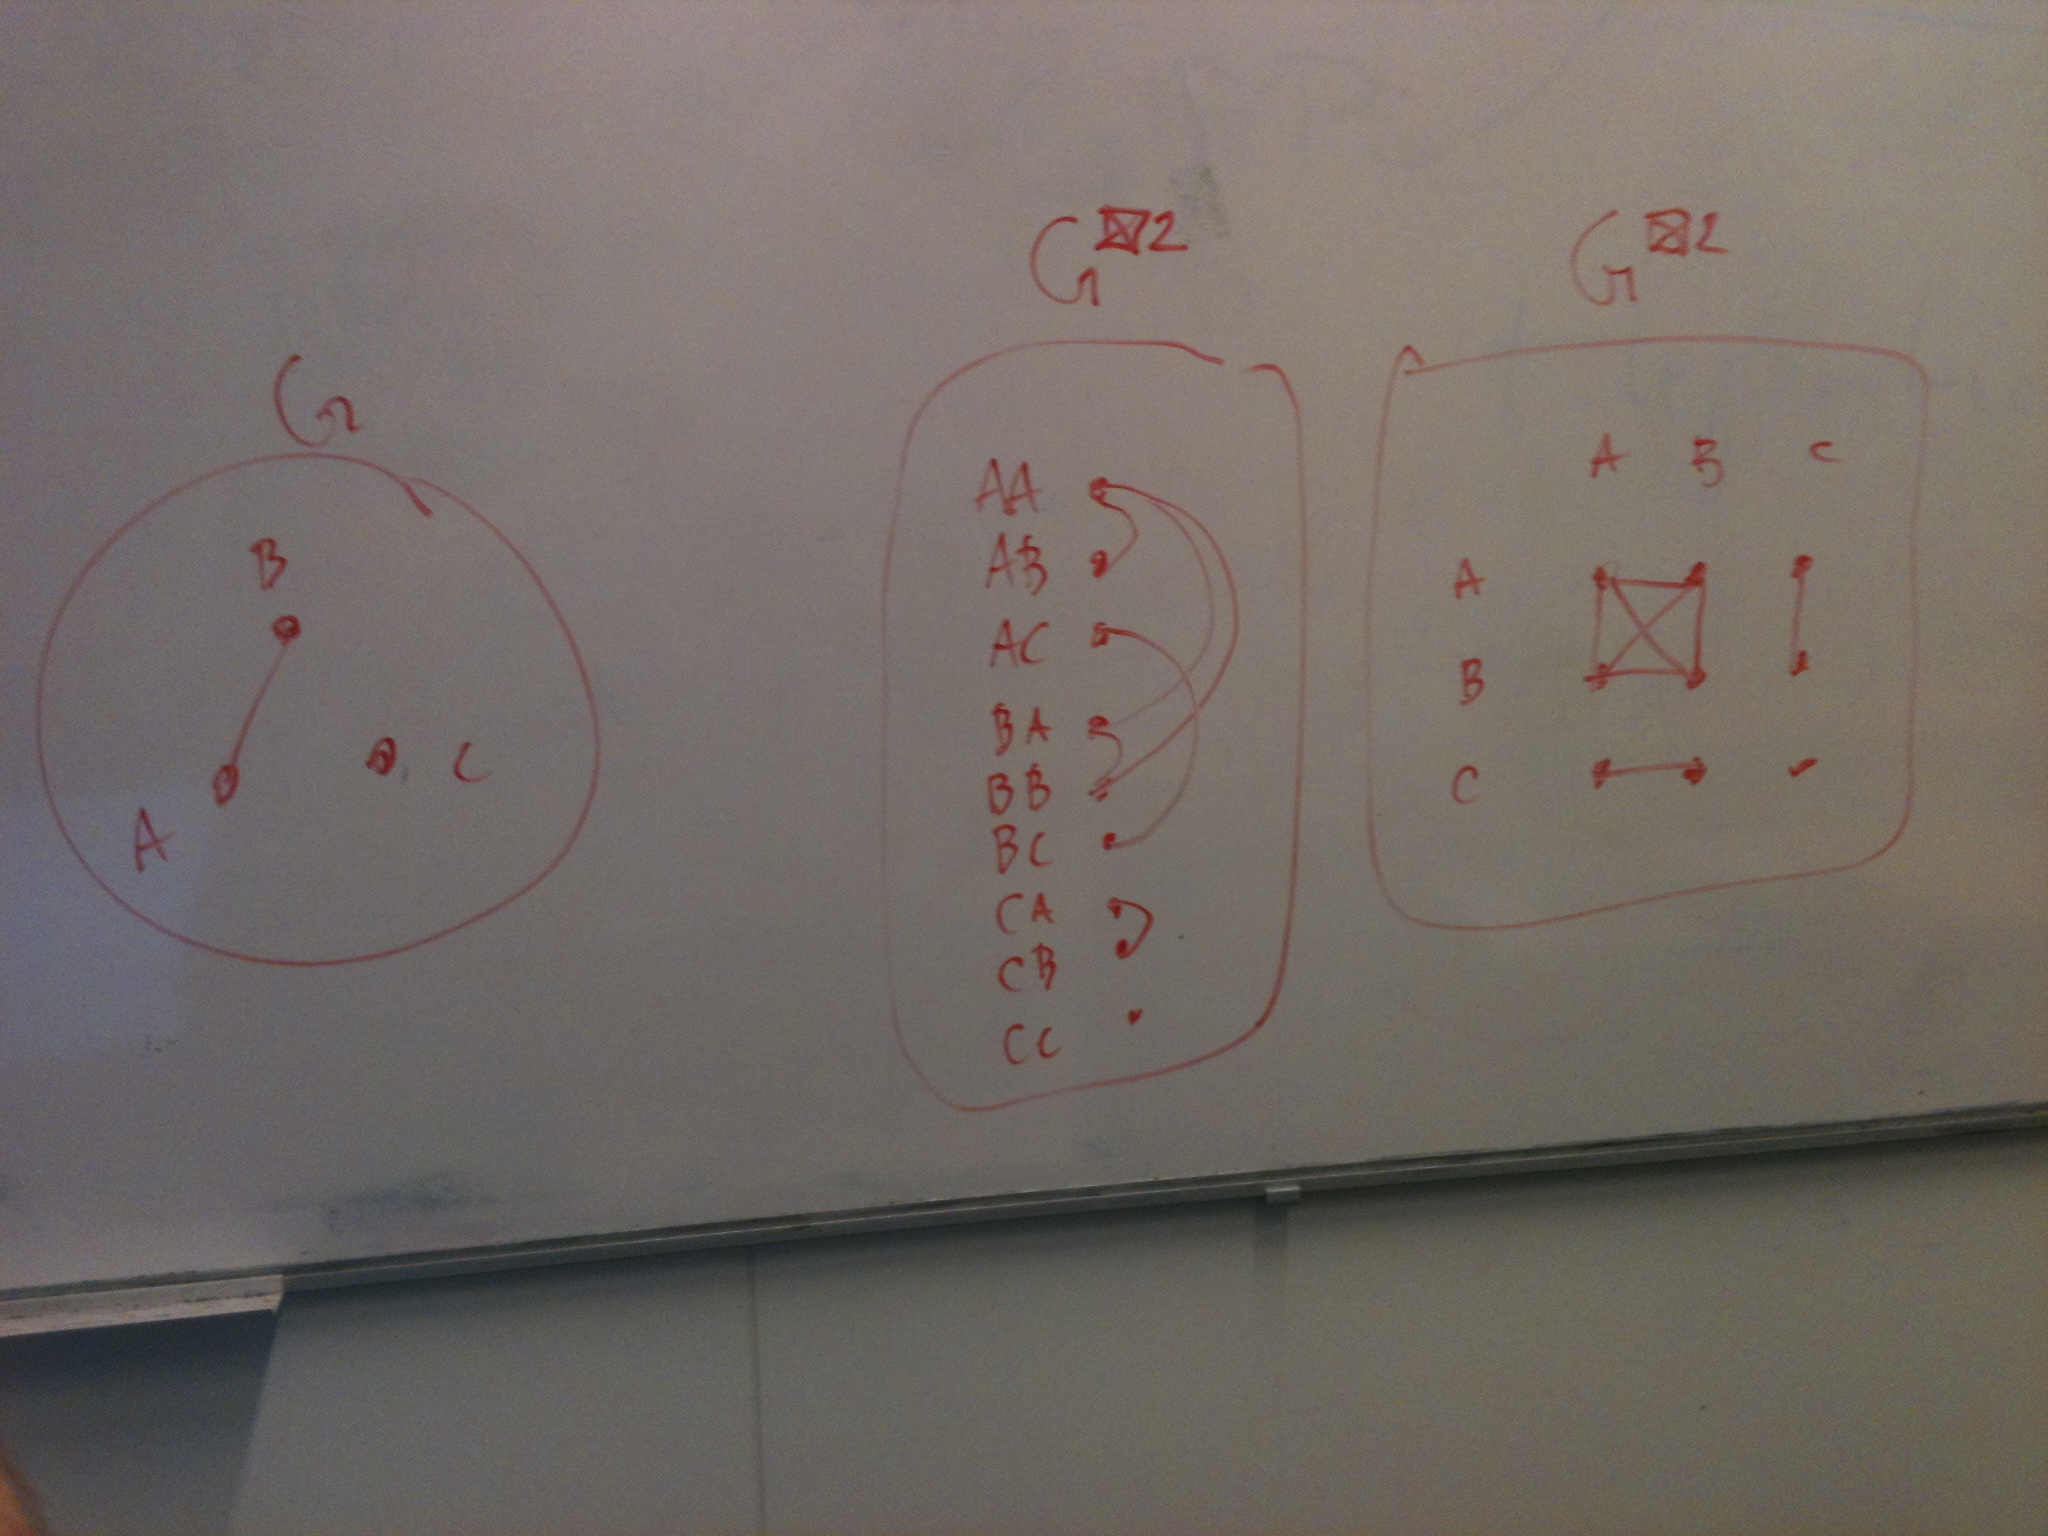 G
B
A
C
G⊠2
AA
AB
AC
BA
BB
BC
CA
CB
CC
G⊠2
A B C
A
B
C